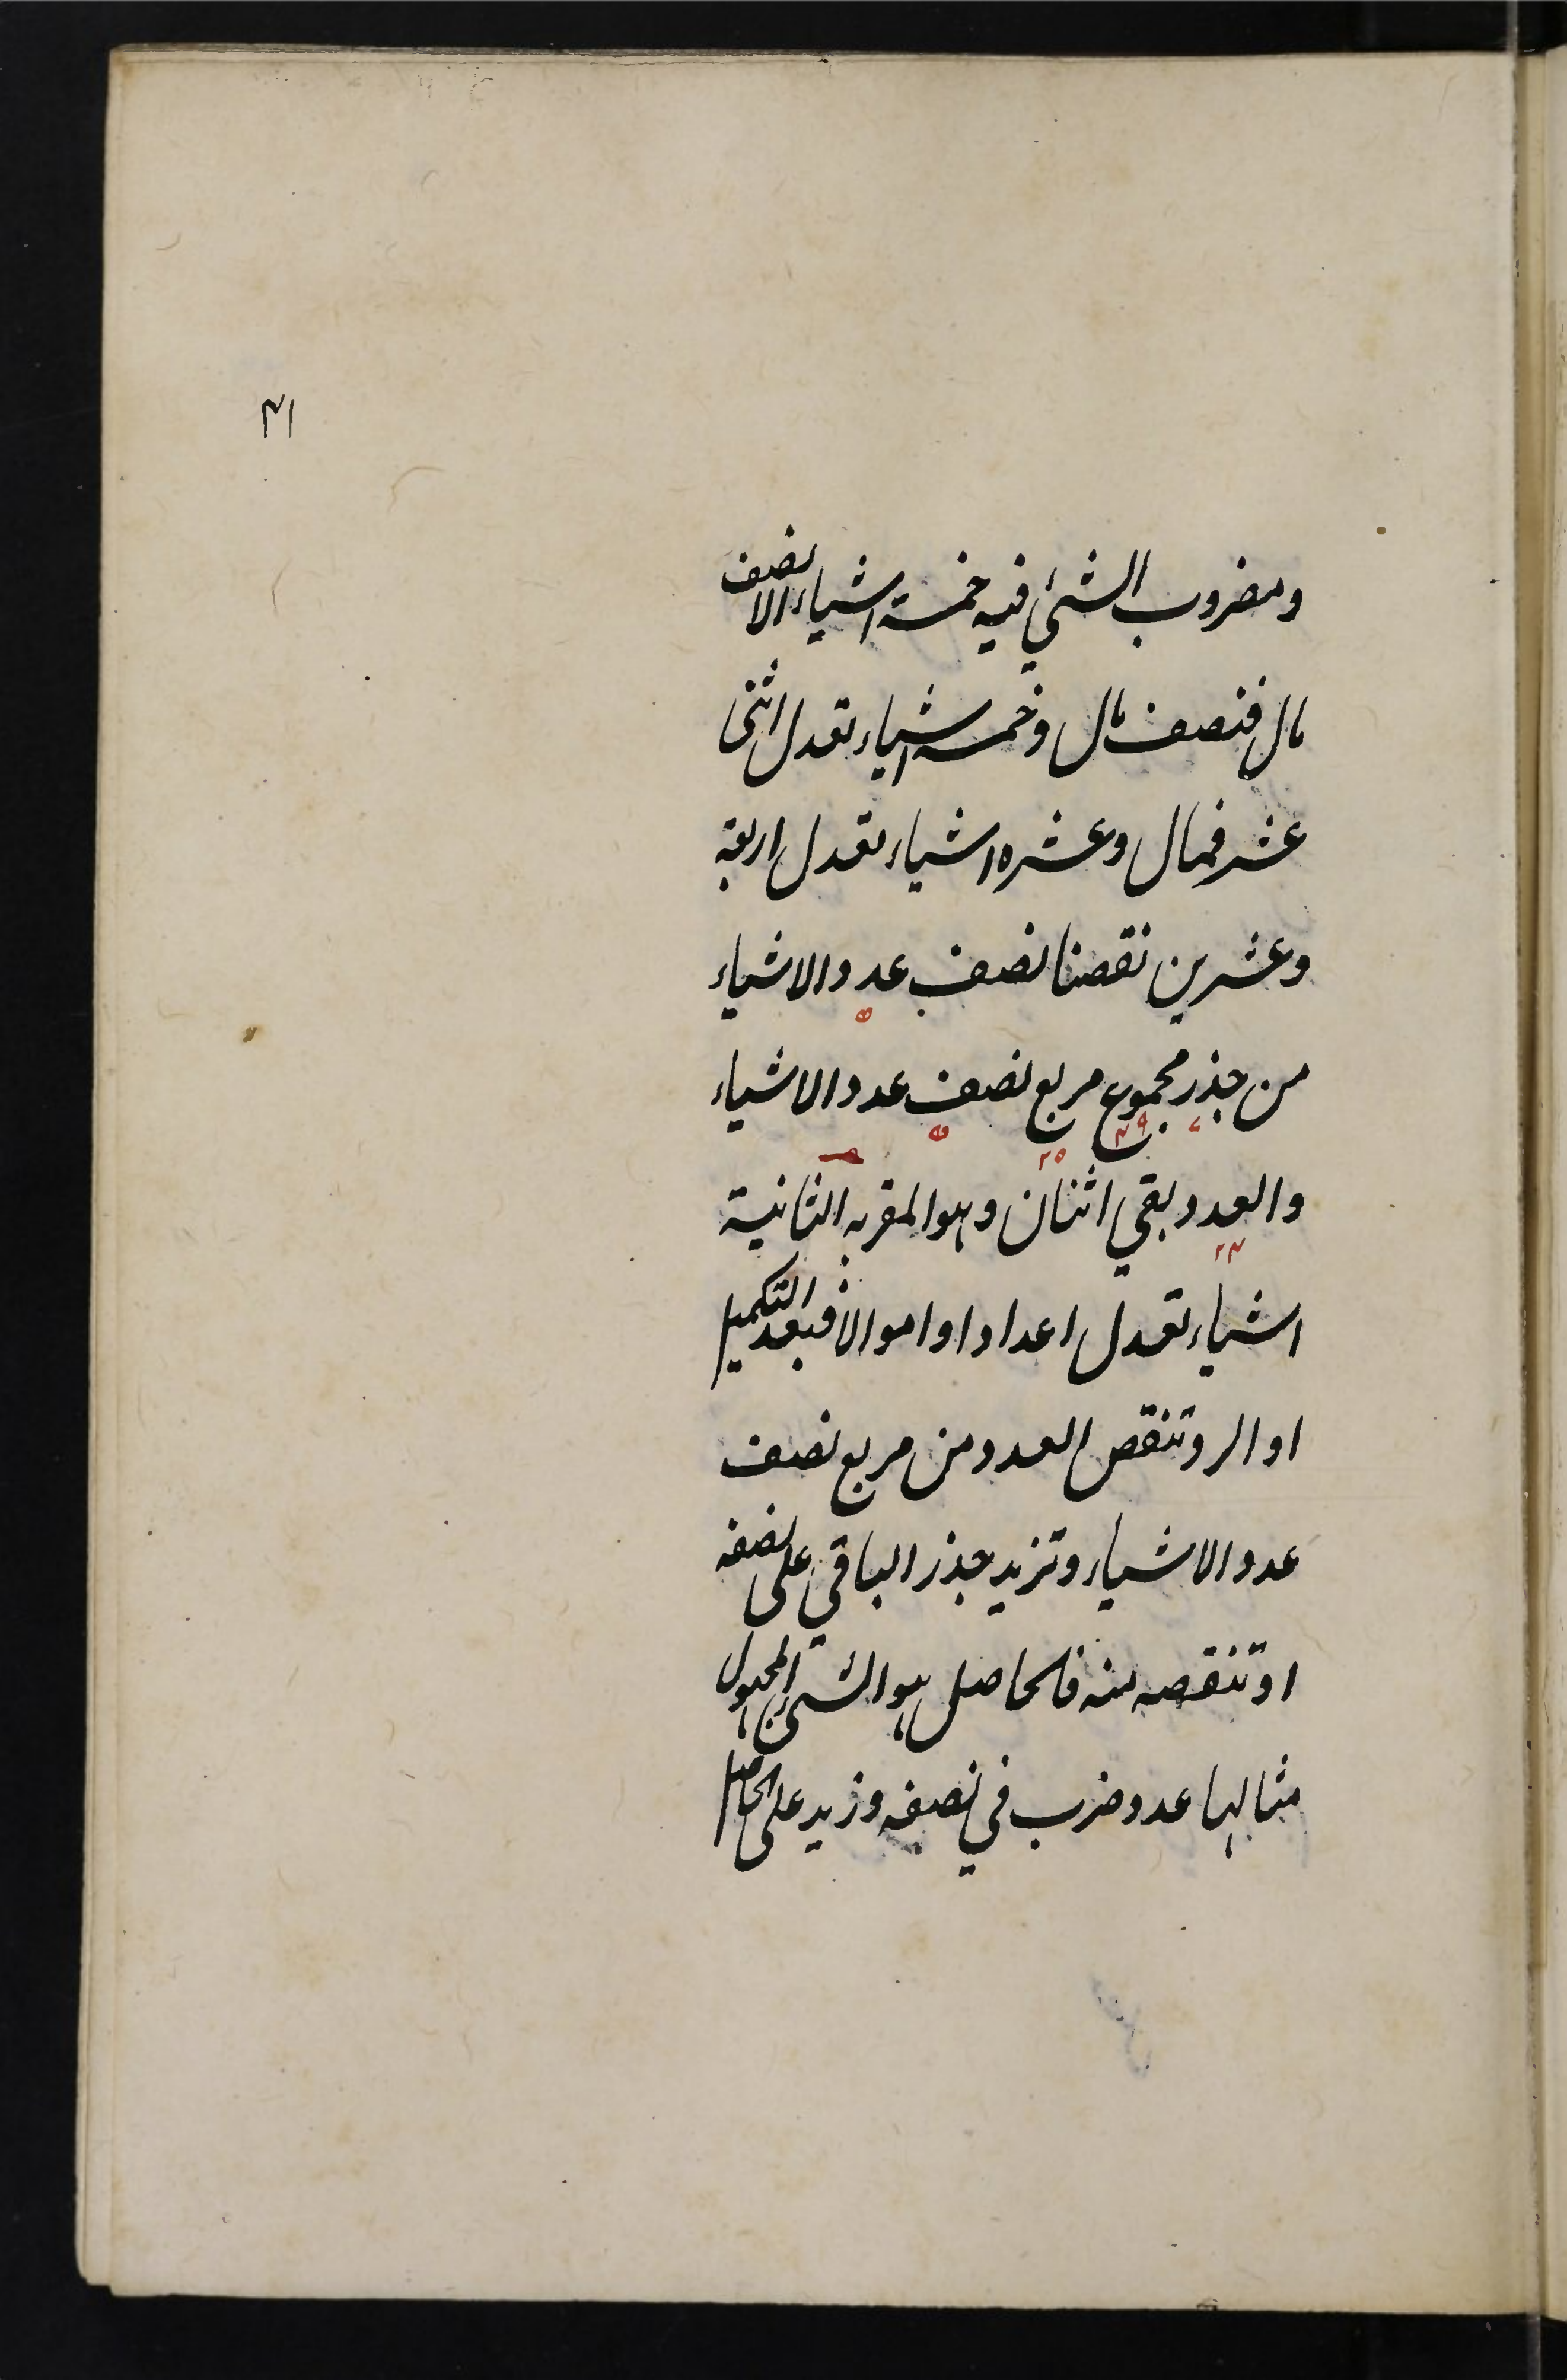 ۴۱
ومضروب الشئ فيه خمسة اشياء الا نصف
مال فنصف مال وخمسه اشياء تعدل اثنى
عشر فمال وعشره اشياء تعدل اربعة
وعشرين نقصنا نصف عدد الاشياء
۵
من جذر مجموع مربع نصف عدد الاشياء
۷ ۴۹ ۲۵ ۵
والعدد بقي اثنان وهو المقربه الثانية
۲۴
اشياء تعدل اعدادا واموالا فبعد التكميل
او الرد تنقص العدد من مربع نصف
عدد الاشياء وتزيد جذر الباقي على نصفه
او تنقصه منه فالحاصل هو الشئ المجهول
مثالها عدد ضرب في نصفه وزيد على الحاصل